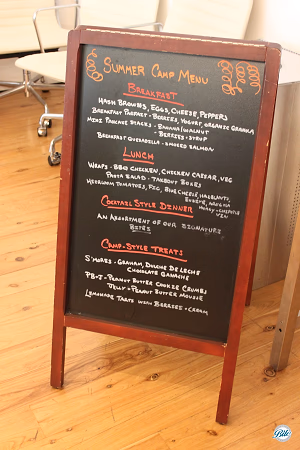 Summer Camp Menu
Breakfast
Hash Browns, Eggs, Cheese, Peppers
Breakfast Parfait - Berries, Yogurt, Organic Granola
Mini Pancake Stacks - Banana/Walnut
- Berries + Syrup
Breakfast Quesadilla - Smoked Salmon
Lunch
Wraps - BBQ Chicken, Chicken Caesar, Veg
Pasta Salad - Takeout Boxes
Heirloom Tomatoes, Fig, Blue Cheese, Hazelnuts,
Honey - Chipotle
Vin
Cocktail Style Dinner
An Assortment of our Signature
Bites
Camp-Style Treats
S'mores - Graham, Dulche De Leche
Chocolate Ganache
PB+J - Peanut Butter Cookie Crumbs
Jelly + Peanut Butter Mousse
Lemonade Tarts with Berries + Cream
Bite